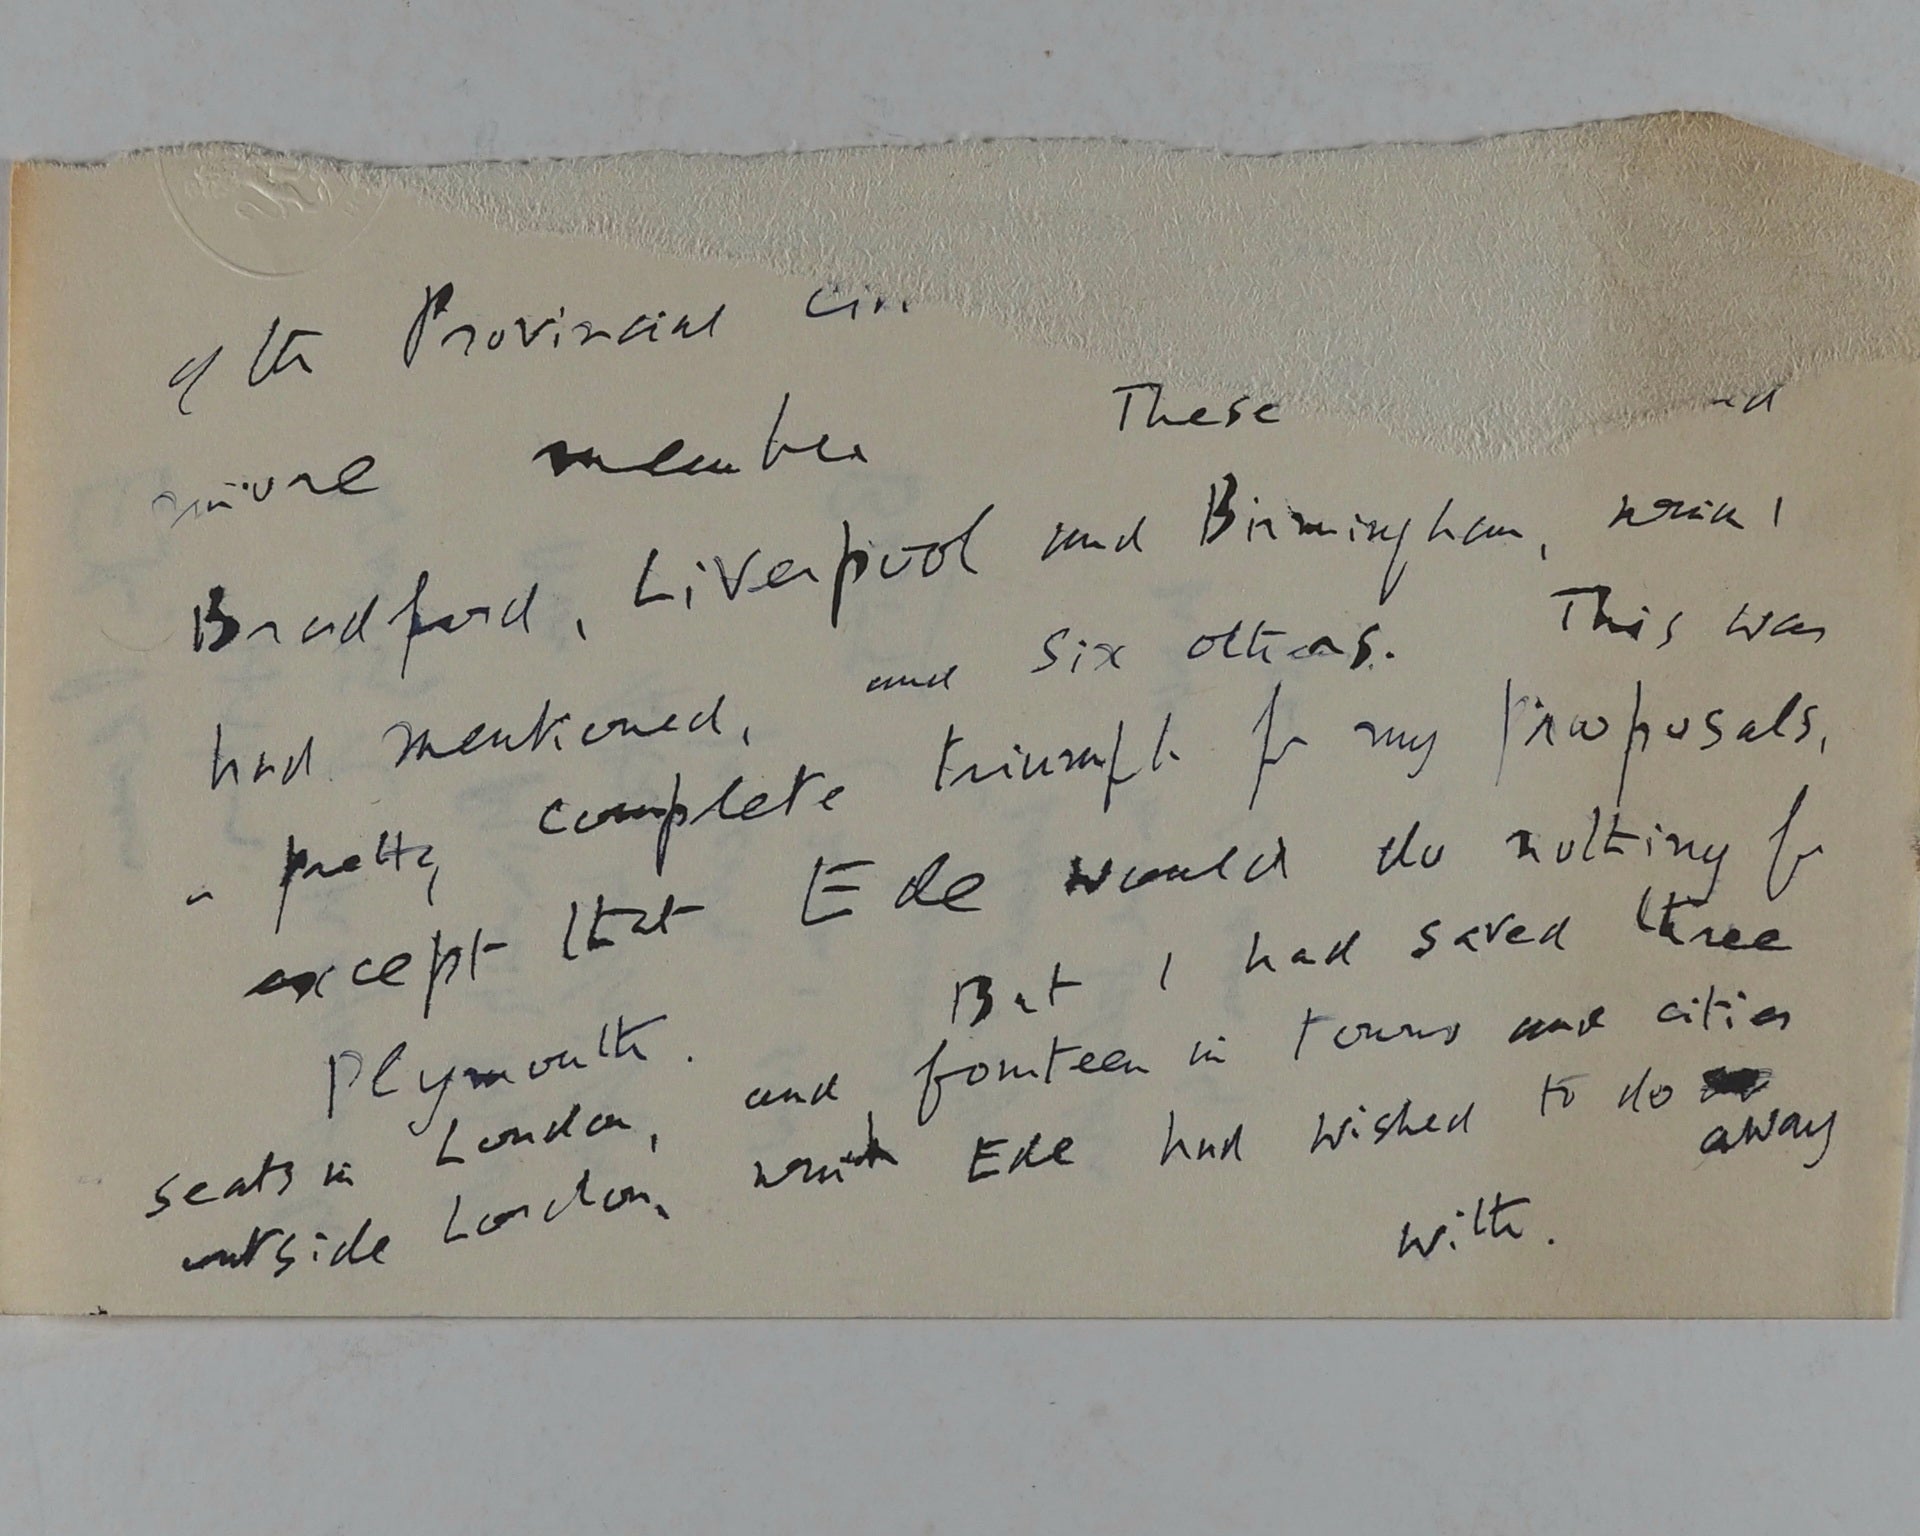 of the Provincial
more member These
Bradford, Liverpool and Birmingham, which I
had mentioned, and six others. This was
a pretty complete triumph for my proposals,
except that Ede would do nothing for
Plymouth. But I had saved three
seats in London, and fourteen in towns and cities
outside London, which Ede had wished to do
away
with.